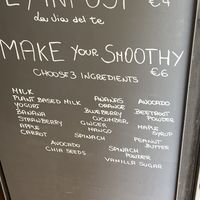 €4
da Vià del te
MAKE YOUR SMOOTHY
CHOOSE 3 INGREDIENTS €6
MILK
PLANT BASED MILK ANANAS AVOCADO
YOGURT ORANGE BEETROOT
BANANA BLUEBERRY POWDER
STRAWBERRY CUCUMBER MAPLE
APPLE GINGER SYRUP
CARROT MANGO PEANUT
SPINACH BUTTER
AVOCADO SPINACH
CHIA SEEDS POWDER
VANILLA SUGAR